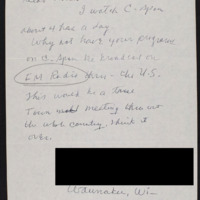 I watch C. Span
about 4 hrs a day.
Why not have your programs
on C. Span be broadcast on
FM Radio thru - the U.S.
This would be a
Town meeting thru out
the whole country, think it
over.
Waunakee, Wis